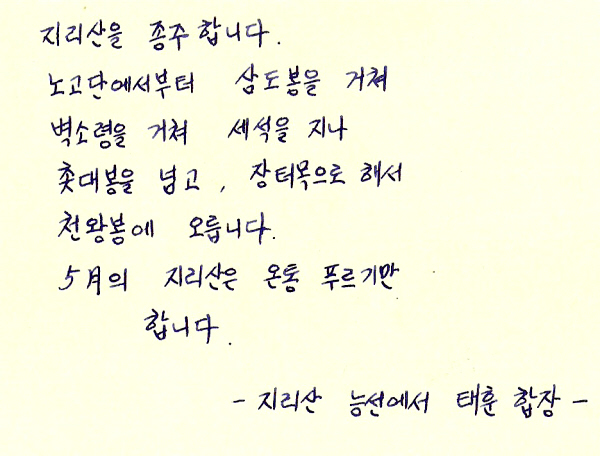 지리산을 종주합니다.
노고단에서부터 삼도봉을 거쳐
벽소령을 거쳐 세석을 지나
촛대봉을 넘고, 장터목으로 해서
천왕봉에 오릅니다.
5月의 지리산은 온통 푸르기만
합니다.
- 지리산 능선에서 태훈 합장 -